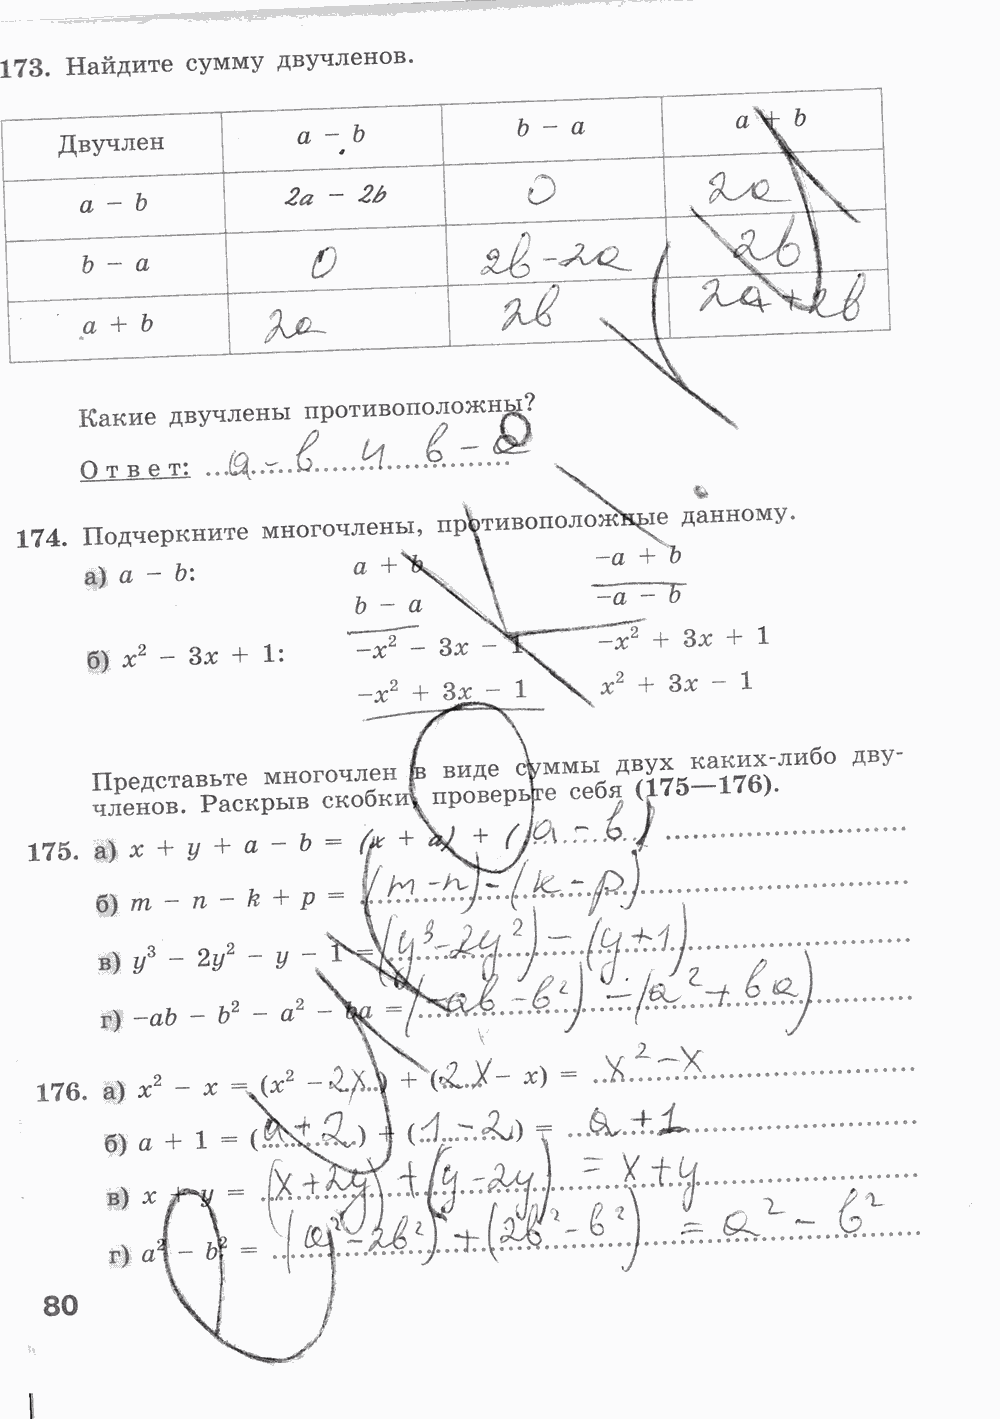 173. Найдите сумму двучленов.
Двучлен a − b b − a a + b
a − b 2a − 2b 0 2a
b − a 0 2b − 2a 2b
a + b 2a 2b 2a + 2b
Какие двучлены противоположны?
Ответ: a − b и b − a
174. Подчеркните многочлены, противоположные данному.
а) a − b: a + b −a + b
b − a −a − b
б) x² − 3x + 1: −x² − 3x − 1 −x² + 3x + 1
−x² + 3x − 1 x² + 3x − 1
Представьте многочлен в виде суммы двух каких-либо дву-
членов. Раскрыв скобки, проверьте себя (175—176).
175. а) x + y + a − b = (x + a) + (a − b)
б) m − n − k + p = (m − n) − (k − p)
в) y³ − 2y² − y − 1 = (y³ − 2y²) − (y + 1)
г) −ab − b² − a² − ba = (−ab − b²) − (a² + ba)
176. а) x² − x = (x² − 2x) + (2x − x) = x² − x
б) a + 1 = (a + 2) + (1 − 2) = a + 1
в) x + y = (x + 2y) + (y − 2y) = x + y
г) a² − b² = (a² − 2b²) + (2b² − b²) = a² − b²
80